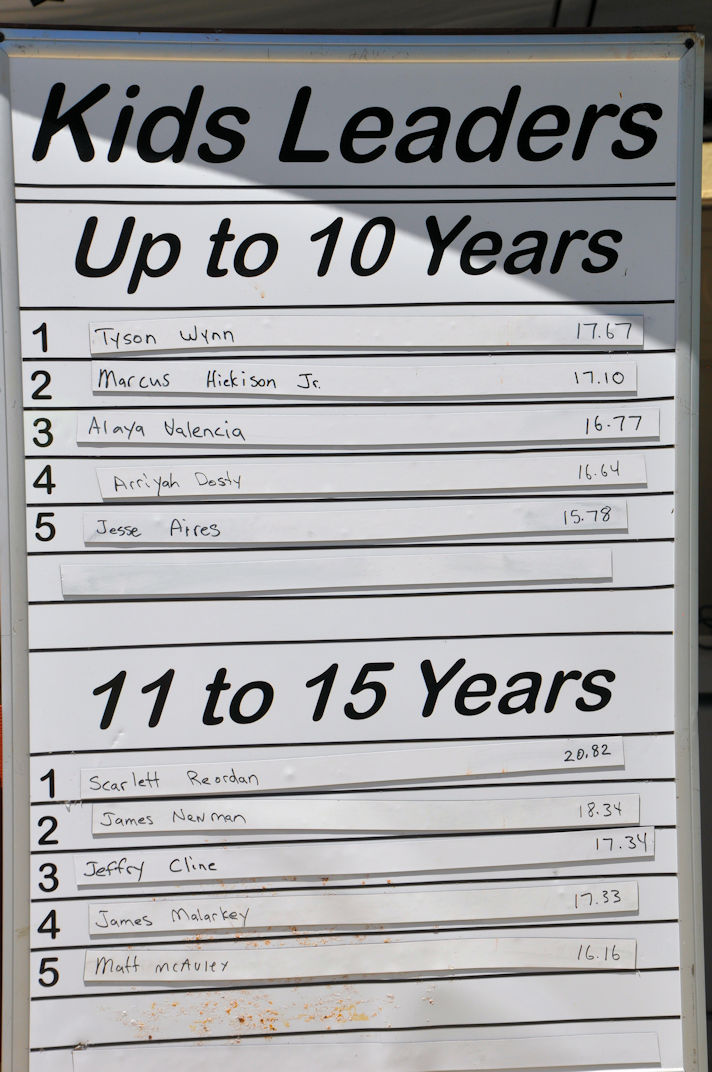 Kids Leaders
Up to 10 Years
1 Tyson Wynn 17.67
2 Marcus Hickison Jr. 17.10
3 Alaya Valencia 16.77
4 Arriyah Dosty 16.64
5 Jesse Aires 15.78
11 to 15 Years
1 Scarlett Reordan 20.82
2 James Newman 18.34
3 Jeffry Cline 17.34
4 James Malarkey 17.33
5 Matt mcAuley 16.16